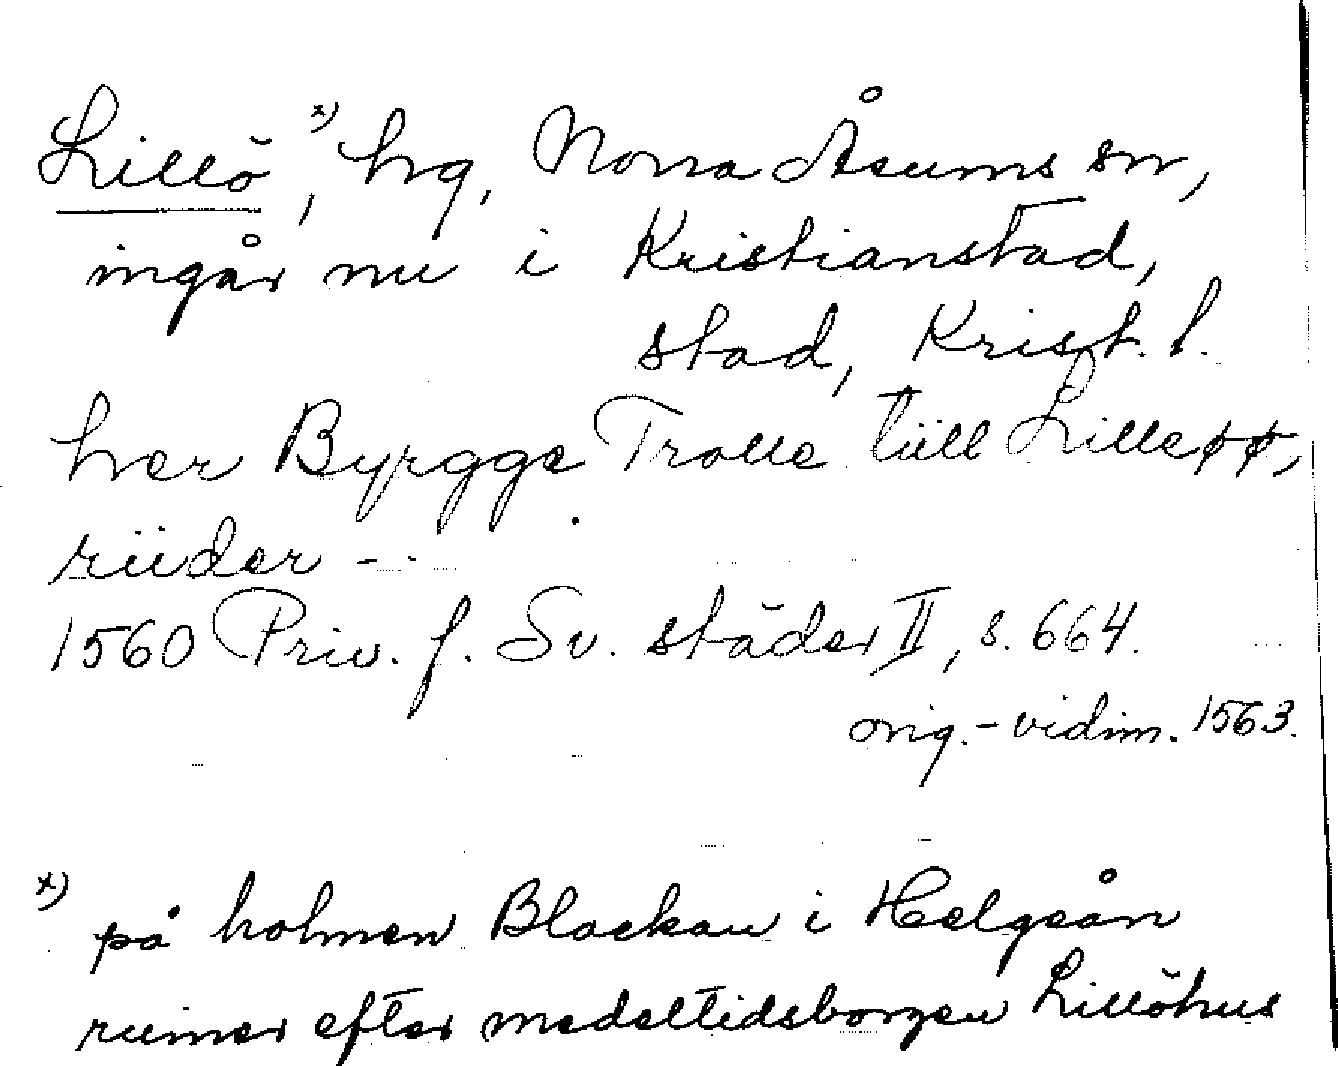 Lillö,ˣ⁾ hg, Norra Åsums sn,
ingår nu i Kristianstad,
stad, Krist. l.
her Byrgge Trolle tiill Lilleøø,
riider - -
1560 Priv. f. Sv. städer II, s. 664.
orig.-vidim. 1563.
x) på holmen Blackan i Helgeån
ruiner efter medeltidsborgen Lillöhus